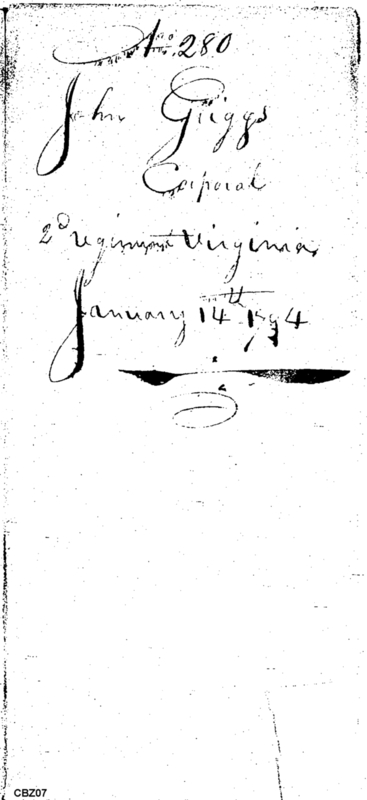 No. 280
John Griggs
Corporal
2d regiment Virginia
January 14th
CBZ07